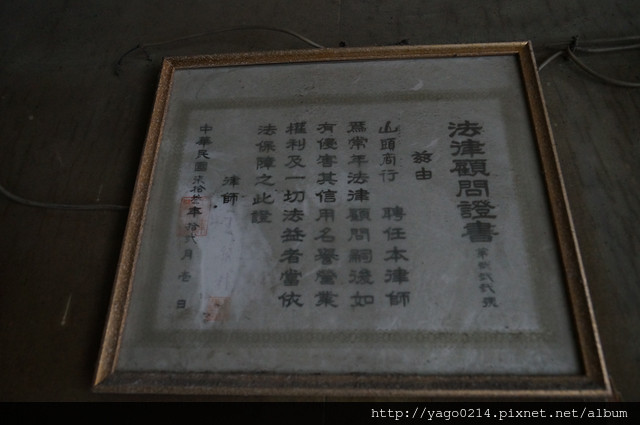 法律顧問證書
第貳貳號
茲由
山頭商行 聘任本律師
為常年法律顧問嗣後如
有侵害其信用名譽營業
權利及一切法益者當依
法保障之此證
律師
中華民國 年拾貳月壱日
http://yago0214.pixnet.net/album